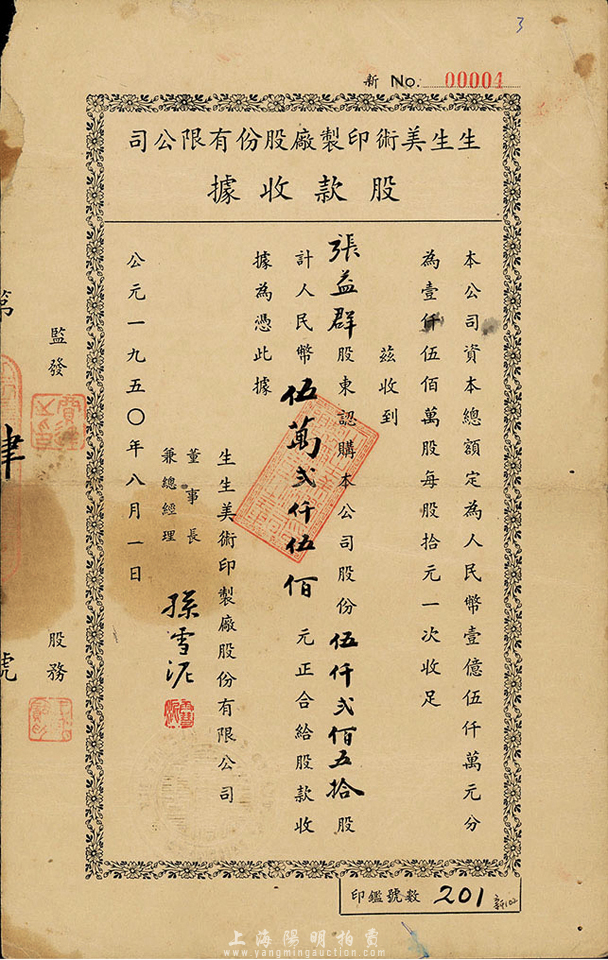 3
新 No. 00004
生生美術印製廠股份有限公司
股款收據
本公司資本總額定為人民幣壹億伍仟萬元分
為壹仟伍佰萬股每股拾元一次收足
茲收到
張益群股東認購本公司股份伍仟弍佰五拾股
計人民幣伍萬弍仟伍佰元正合給股款收
據為憑此據
生生美術印製廠股份有限公司
董事長
兼總經理
孫雪泥
公元一九五〇年八月一日
監發
股務
第
肆
號
印鑑號數 201
上海陽明拍賣
www.yangmingauction.com